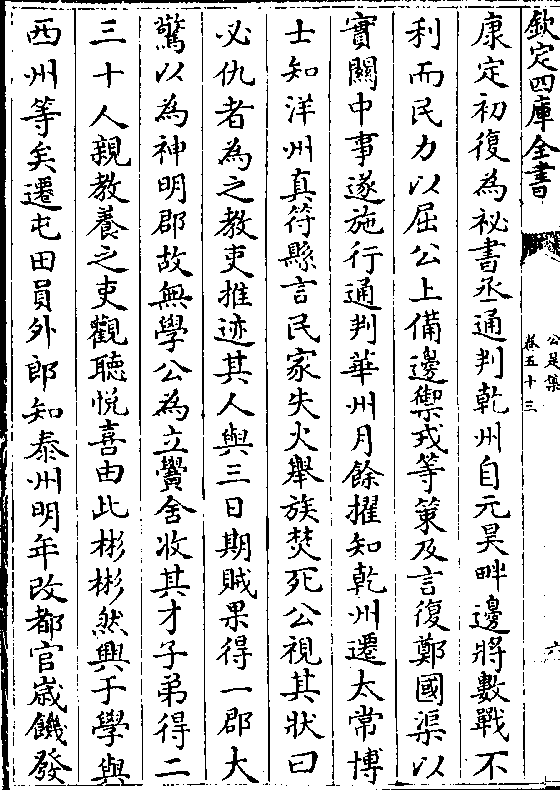 欽定四庫全書
公是集
卷五十三
六
康定初復為祕書丞通判乾州自元昊畔邊將數戰不
利而民力以屈公上備邊禦戎等策及言復鄭國渠以
實關中事遂施行通判華州月餘擢知乾州遷太常博
士知洋州真符縣言民家失火舉族焚死公視其狀曰
必仇者為之教吏推迹其人與三日期賊果得一郡大
驚以為神明郡故無學公為立黌舍收其才子弟得二
三十人親教養之吏觀聽悅喜由此彬彬然興于學與
西州等矣遷屯田員外郎知泰州明年改都官歲饑發